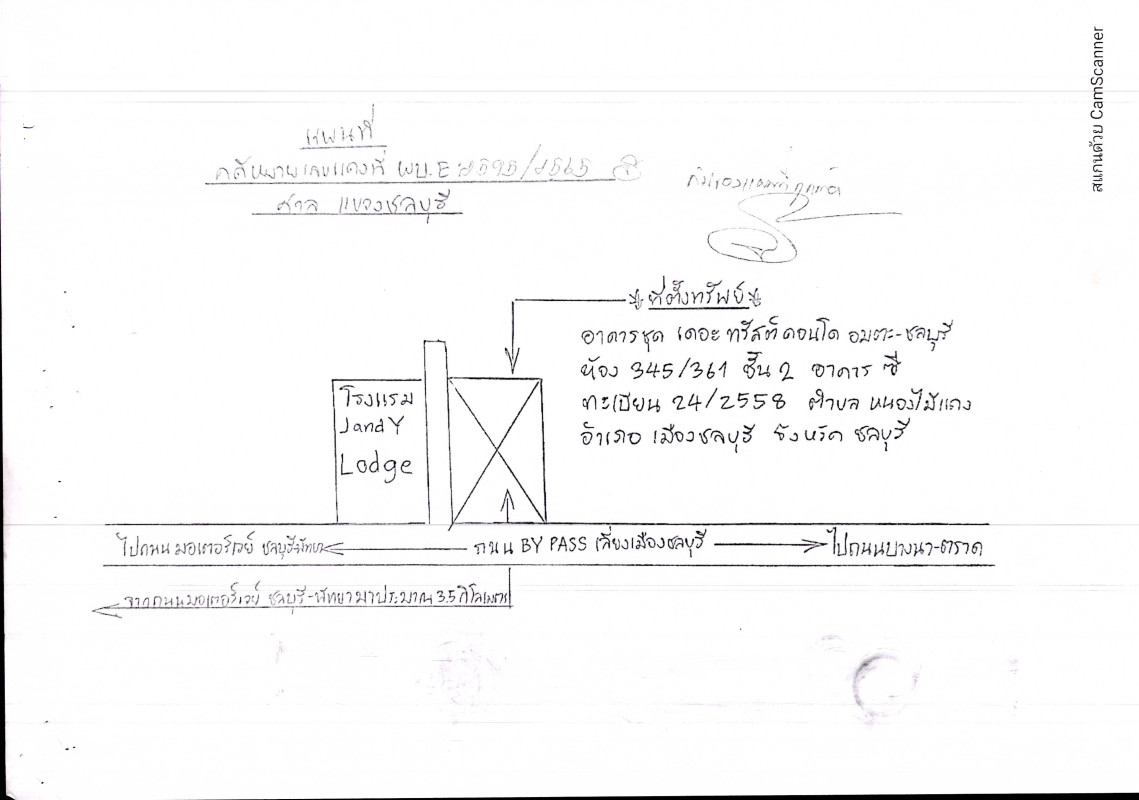 แผนที่
คดีหมายเลขแดงที่ ผบ.E 2595/2565
ศาล แขวงชลบุรี
ที่ตั้งทรัพย์
อาคารชุด เดอะ ทรัสต์ คอนโด อมตะ-ชลบุรี
ห้อง 345/361 ชั้น 2 อาคาร ซี
ทะเบียน 24/2558 ตำบล หนองไม้แดง
อำเภอ เมืองชลบุรี จังหวัด ชลบุรี
โรงแรม
JandY
Lodge
ไปถนน มอเตอร์เวย์ ชลบุรี-พัทยา
ถนน BY PASS เลี่ยงเมืองชลบุรี
ไปถนนบางนา-ตราด
จากถนนมอเตอร์เวย์ ชลบุรี-พัทยามาประมาณ 3.5 กิโลเมตร
สแกนด้วย CamScanner